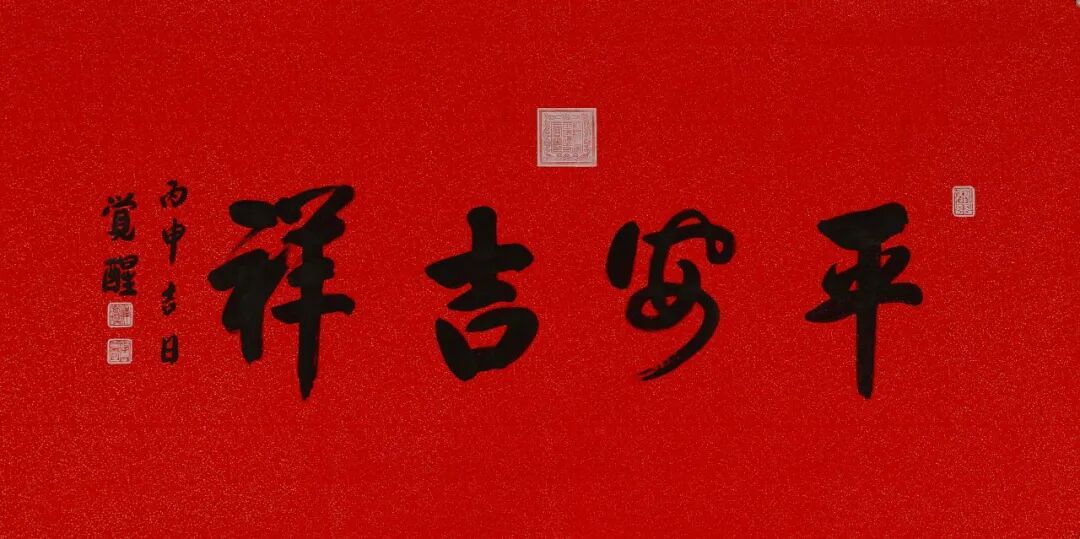 平安吉祥
丙申吉日
覚醒